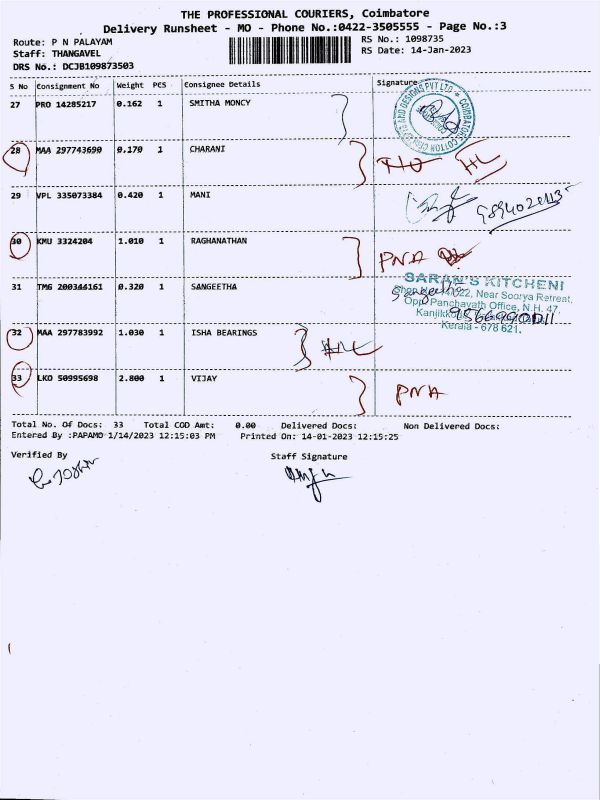 THE PROFESSIONAL COURIERS, Coimbatore
Delivery Runsheet - MO - Phone No.:0422-3505555 - Page No.:3
Route: P N PALAYAM RS No.: 1098735
Staff: THANGAVEL RS Date: 14-Jan-2023
DRS No.: DCJB109873503
S No Consignment No Weight PCS Consignee Details Signature
27 PRO 14285217 0.162 1 SMITHA MONCY
28 MAA 297743690 0.170 1 CHARANI
29 VPL 335073384 0.420 1 MANI
30 KMU 3324204 1.010 1 RAGHANATHAN PNA
31 TMG 200344161 0.320 1 SANGEETHA
SARAN'S KITCHENI
Near Soorya Retreat,
Opp. Panchayath Office, N.H. 47,
Kerala - 678 621.
Sangeetha
32 MAA 297783992 1.030 1 ISHA BEARINGS
33 LKO 50995698 2.800 1 VIJAY PNA
Total No. Of Docs: 33 Total COD Amt: 0.00 Delivered Docs: Non Delivered Docs:
Entered By :PAPAMO 1/14/2023 12:15:03 PM Printed On: 14-01-2023 12:15:25
Verified By Staff Signature